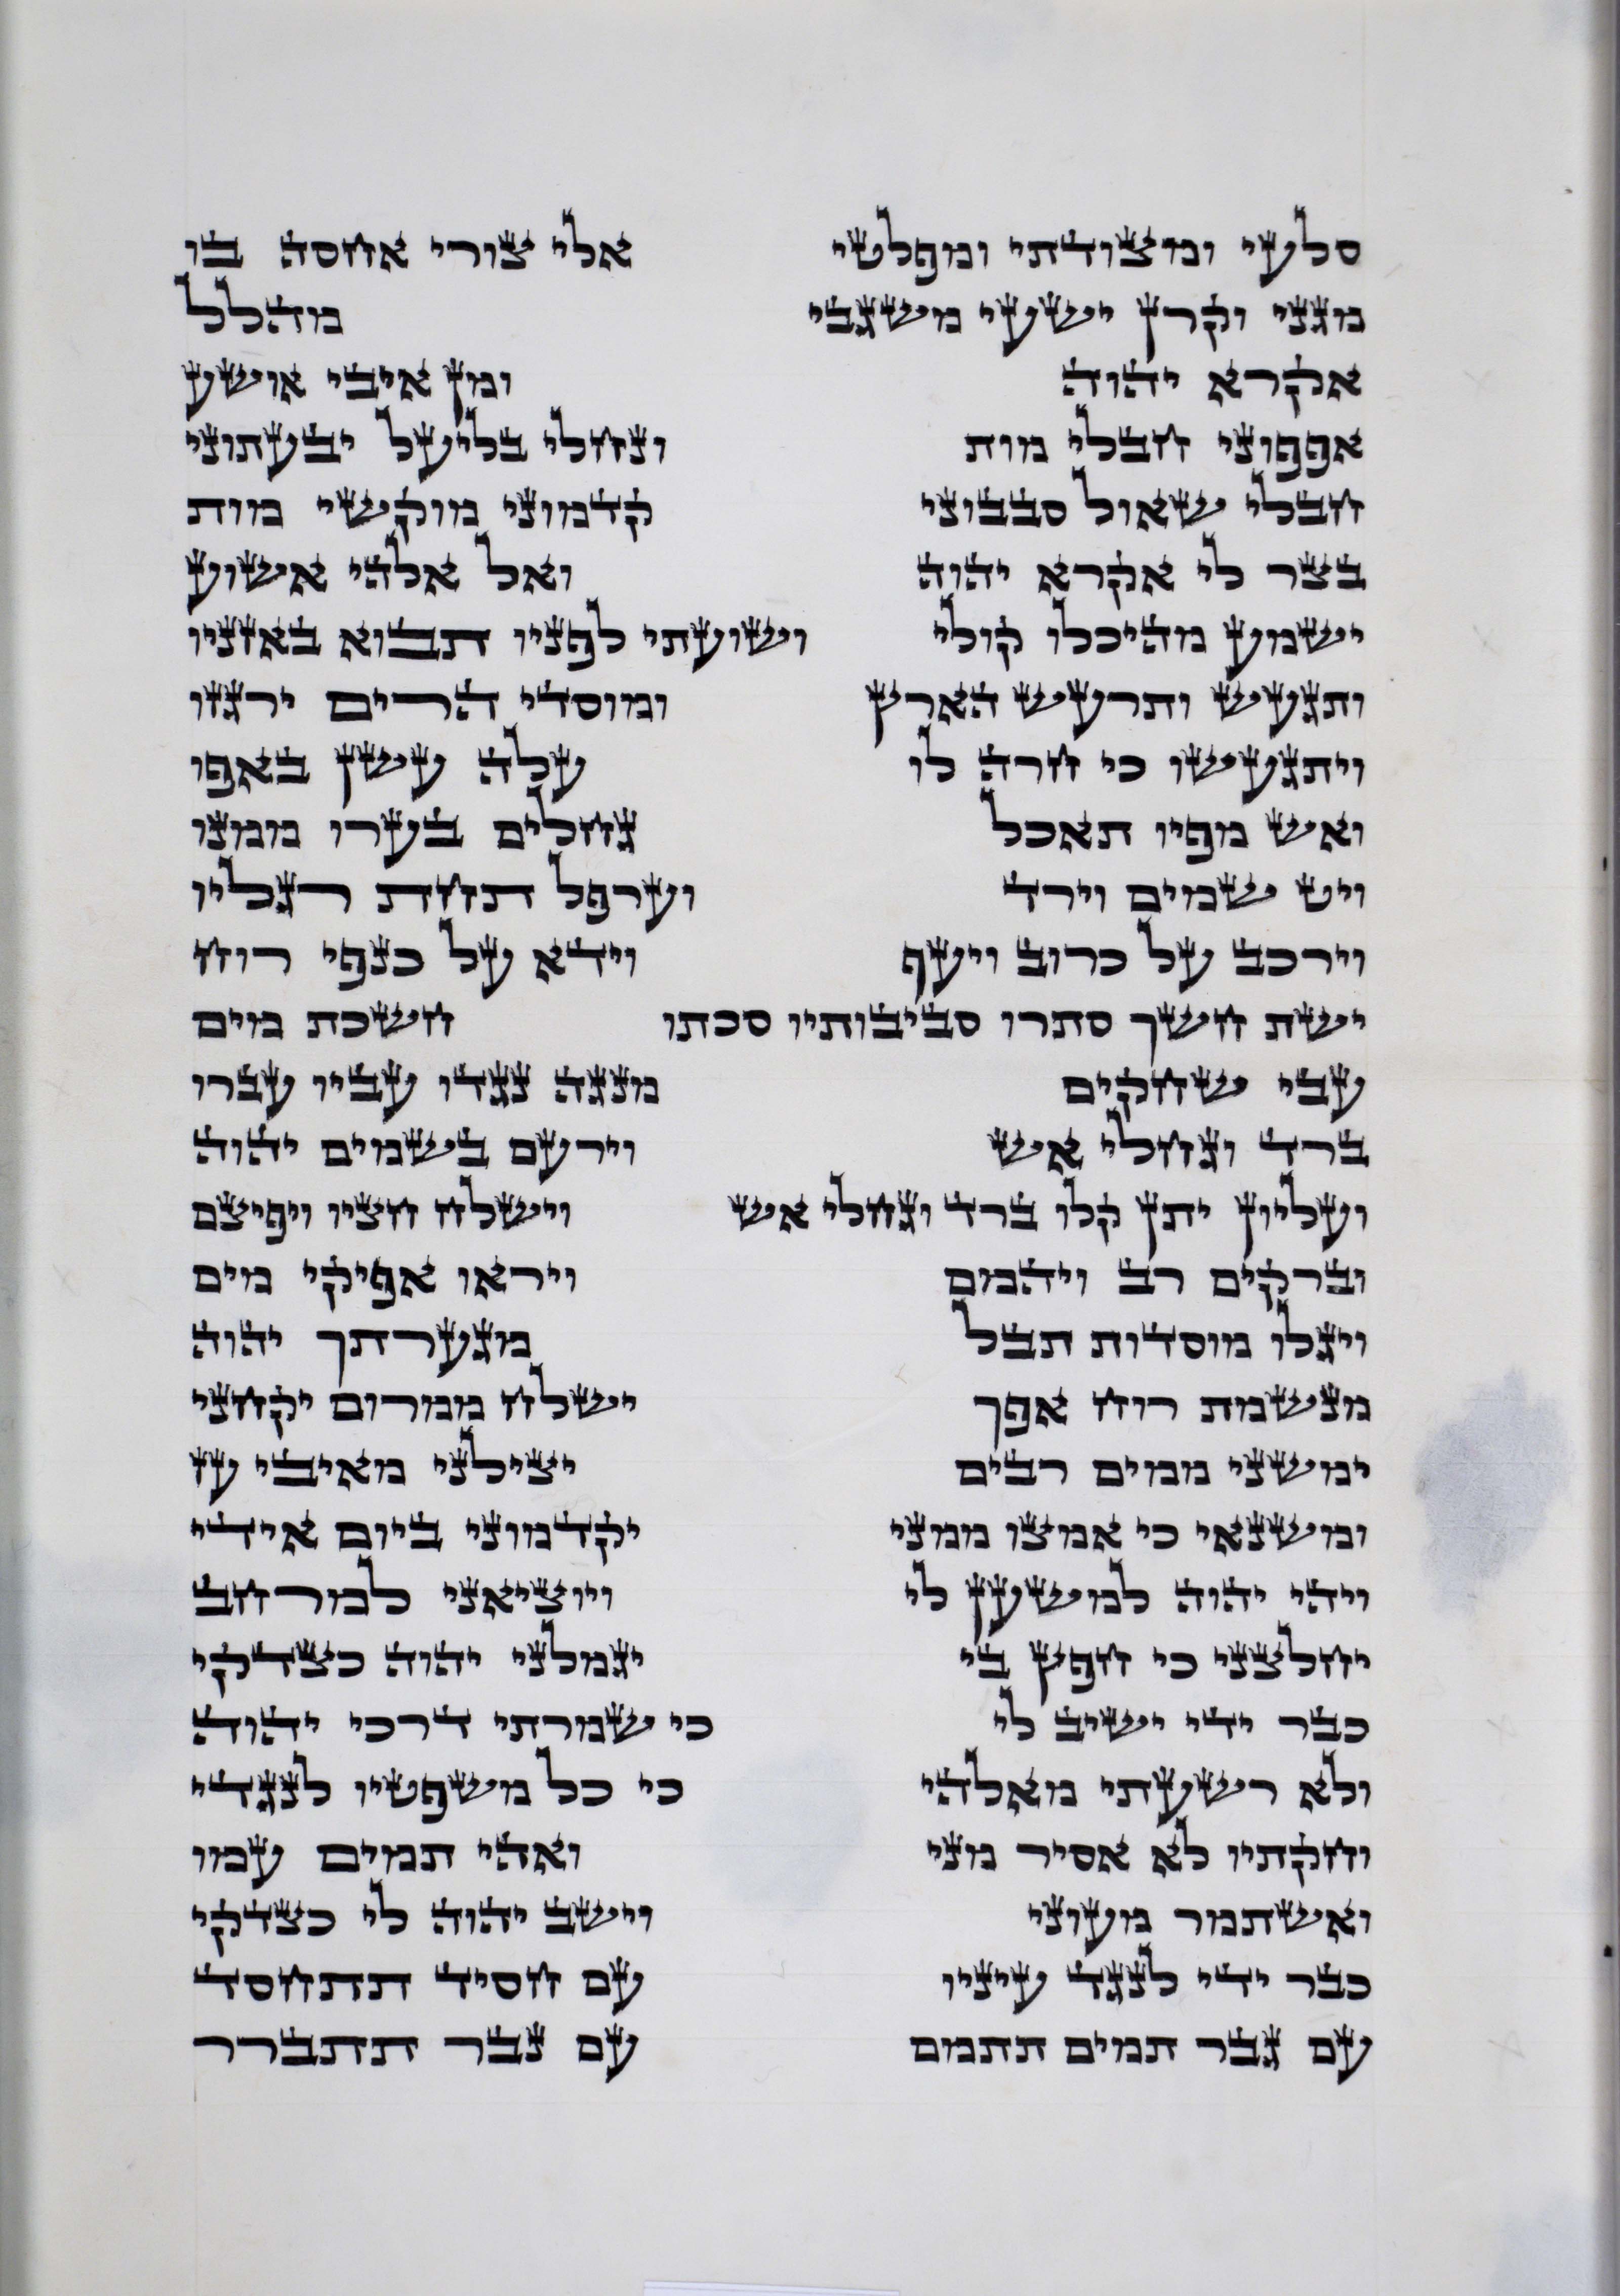 סלעי ומצודתי ומפלטי אלי צורי אחסה בו
מגני וקרן ישעי משגבי מהלל
אקרא יהוה ומן איבי אושע
אפפוני חבלי מות ונחלי בליעל יבעתוני
חבלי שאול סבבוני קדמוני מוקשי מות
בצר לי אקרא יהוה ואל אלהי אשוע
ישמע מהיכלו קולי ושועתי לפניו תבוא באזניו
ותגעש ותרעש הארץ ומוסדי הרים ירגזו
ויתגעשו כי חרה לו עלה עשן באפו
ואש מפיו תאכל גחלים בערו ממנו
ויט שמים וירד וערפל תחת רגליו
וירכב על כרוב ויעף וידא על כנפי רוח
ישת חשך סתרו סביבותיו סכתו חשכת מים
עבי שחקים מנגה נגדו עביו עברו
ברד וגחלי אש וירעם בשמים יהוה
ועליון יתן קלו ברד וגחלי אש וישלח חציו ויפיצם
וברקים רב ויהמם ויראו אפיקי מים
ויגלו מוסדות תבל מגערתך יהוה
מנשמת רוח אפך ישלח ממרום יקחני
ימשני ממים רבים יצילני מאיבי עז
ומשנאי כי אמצו ממני יקדמוני ביום אידי
ויהי יהוה למשען לי ויוציאני למרחב
יחלצני כי חפץ בי יגמלני יהוה כצדקי
כבר ידי ישיב לי כי שמרתי דרכי יהוה
ולא רשעתי מאלהי כי כל משפטיו לנגדי
וחקתיו לא אסיר מני ואהי תמים עמו
ואשתמר מעוני וישב יהוה לי כצדקי
כבר ידי לנגד עיניו עם חסיד תתחסד
עם גבר תמים תתמם עם נבר תתברר